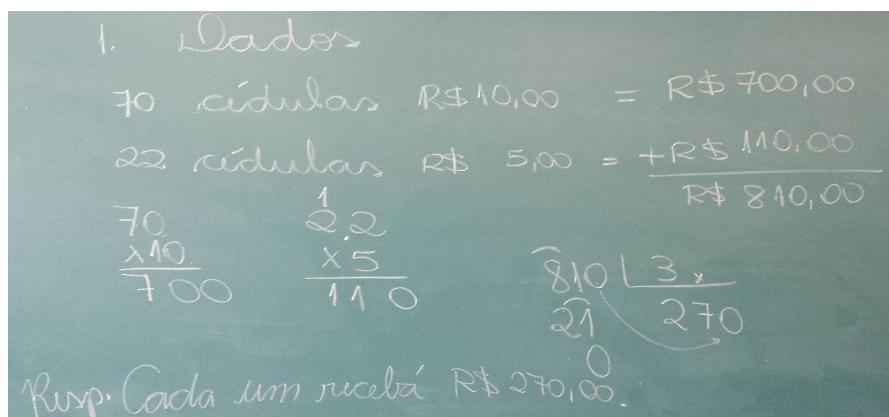 1. Dados
70 cédulas R$ 10,00 = R$ 700,00
22 cédulas R$ 5,00 = +R$ 110,00
R$ 810,00
70
x10
700
1
22
x5
110
810 | 3 x
21 270
0
Resp. Cada um recebá R$ 270,00.